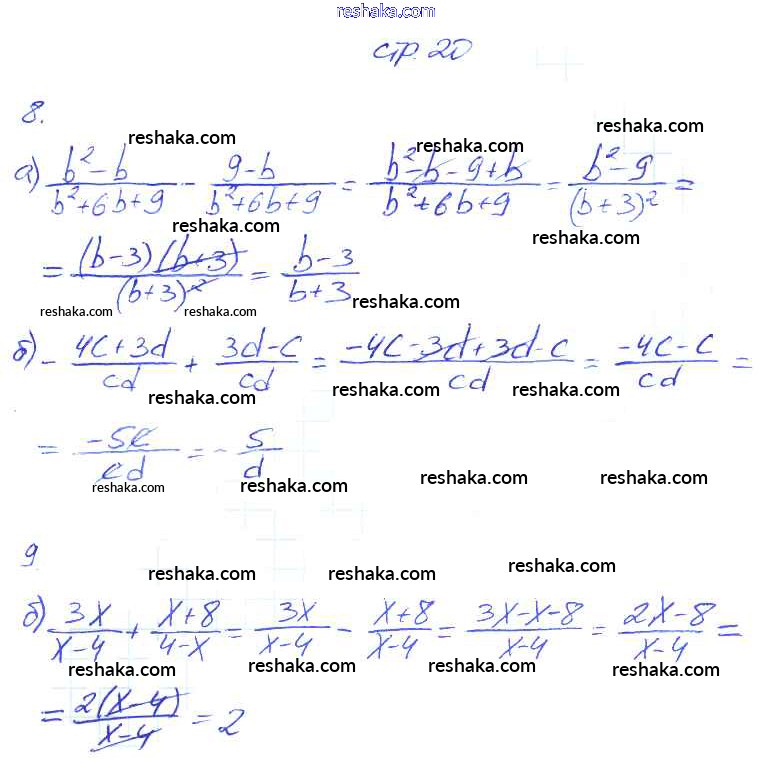 reshaka.com
стр. 20
8.
reshaka.com reshaka.com reshaka.com
а) (b²-b)/(b²+6b+9) - (9-b)/(b²+6b+9) = (b²-b-9+b)/(b²+6b+9) = (b²-9)/(b+3)² =
reshaka.com reshaka.com
= (b-3)(b+3)/(b+3)² = (b-3)/(b+3)
reshaka.com reshaka.com reshaka.com
б) - (4c+3d)/cd + (3d-c)/cd = (-4c-3d+3d-c)/cd = (-4c-c)/cd =
reshaka.com reshaka.com reshaka.com reshaka.com
= -5c/cd = - 5/d
reshaka.com reshaka.com reshaka.com reshaka.com
9
reshaka.com reshaka.com reshaka.com
б) 3x/(x-4) + (x+8)/(4-x) = 3x/(x-4) - (x+8)/(x-4) = (3x-x-8)/(x-4) = (2x-8)/(x-4) =
reshaka.com reshaka.com reshaka.com reshaka.com
= 2(x-4)/(x-4) = 2